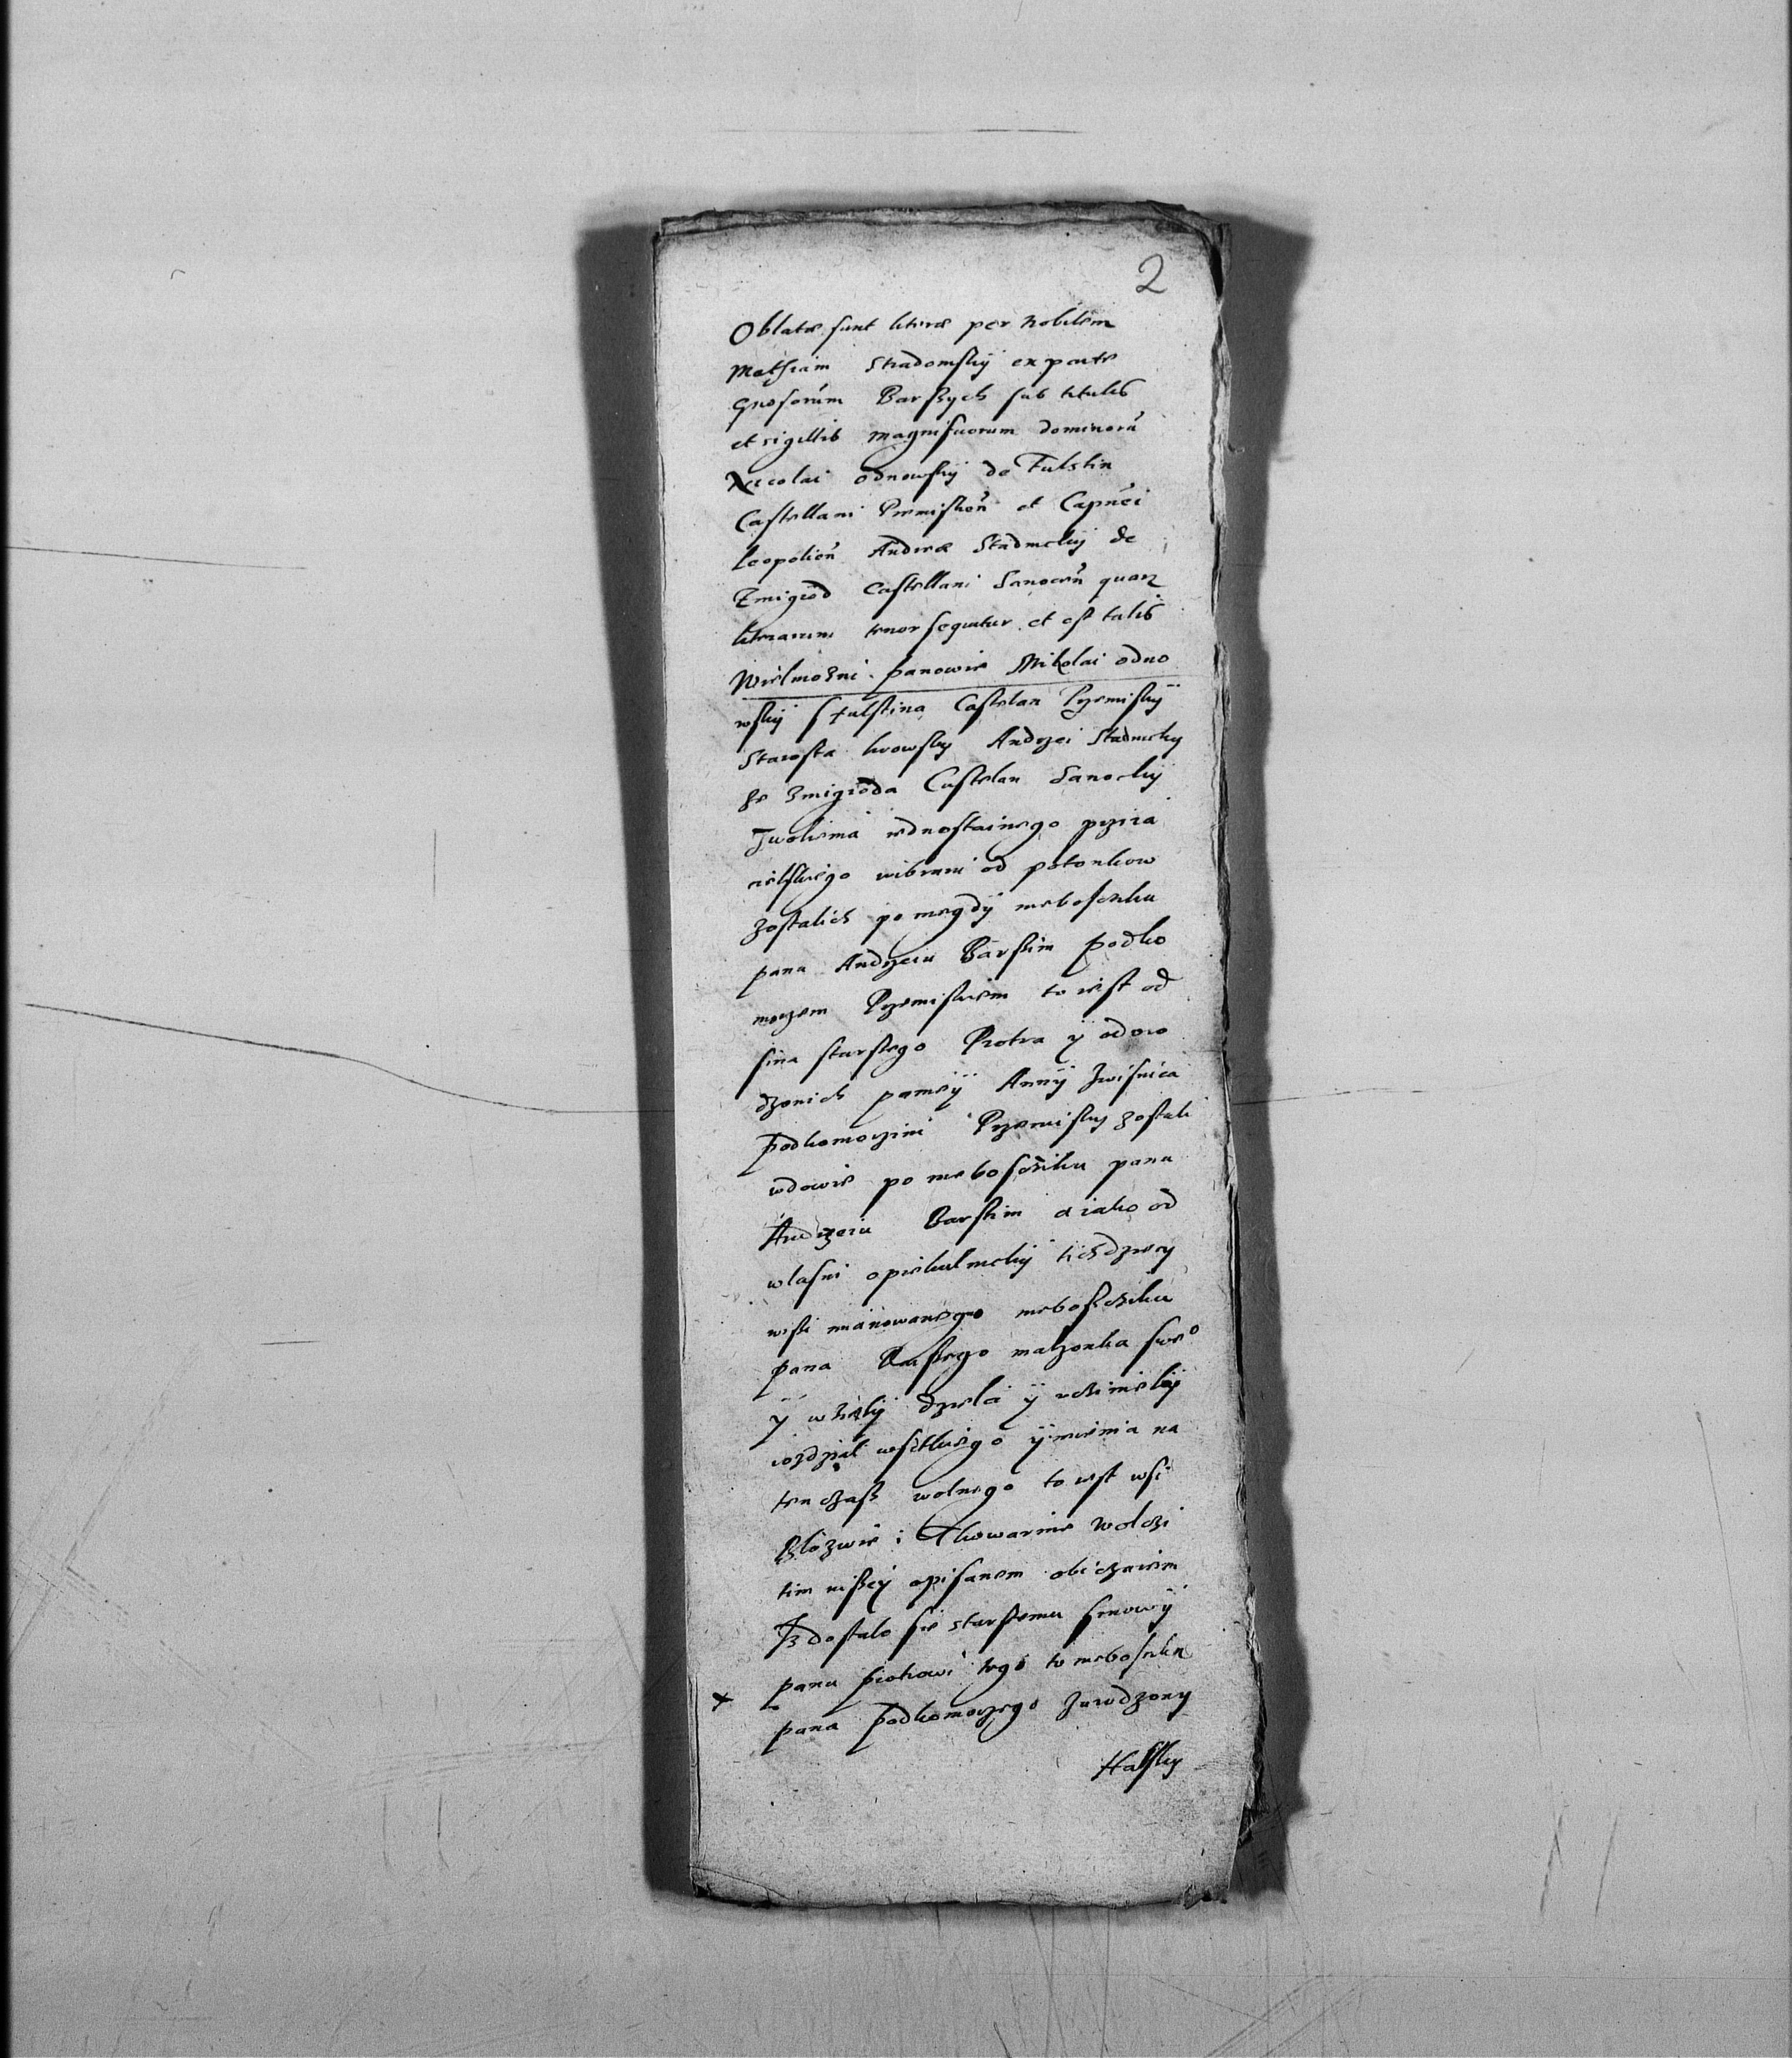 2
Oblatæ sunt literæ per nobilem
Mathiam Stradomskÿ ex parte
gnosorum Barskych sub titulis
et sigillis magnificorum dominorũ
Nicolai Odnowskÿ de Fulstin
Castellani Premislien̄ et Capnei
Leopolien̄ Andreæ Stadnickÿ de
Zmigrod Castellani Sanocen̄ quar
literarum tenor sequitur et est talis
Wielmozni panowie Mikolai Odno
wskÿ s Fulstina Castelan Przemiskÿ
Starosta lwowsky Andrzei Stadnicky
ze Zmigroda Castelan Sanockÿ
Jwolienia iednostainego przia
cielskiego wibrani od potomkow
zostalich po niegdÿ nieboscziku
panu Andrzeiu Barskim podko
morzem Przemiskiem to iest od
sina starszego Piotra ÿ od
dzonich paniÿ Annÿ
podkomorzini Przemisky zostali
wdowie po nieboscziku panu
Andrzeiu Barskim a iako od
wlasni opiekalnickÿ tich dzieci
wsti mianowanego nieboscziku
pana Barskiego malzonka swe°
ÿ wzielÿ dziela ÿ uczinielÿ
rozdzial wsitkiego ÿmienia na
ten czass wolnego to iest wsi
Blozwie i
tim nizeÿ opisanem obiczaiem
Jz dostalo sie starszemu sinowÿ
panu piotrowi tego to nieboscika
x pana podkomorzego zurodzony
Halsky